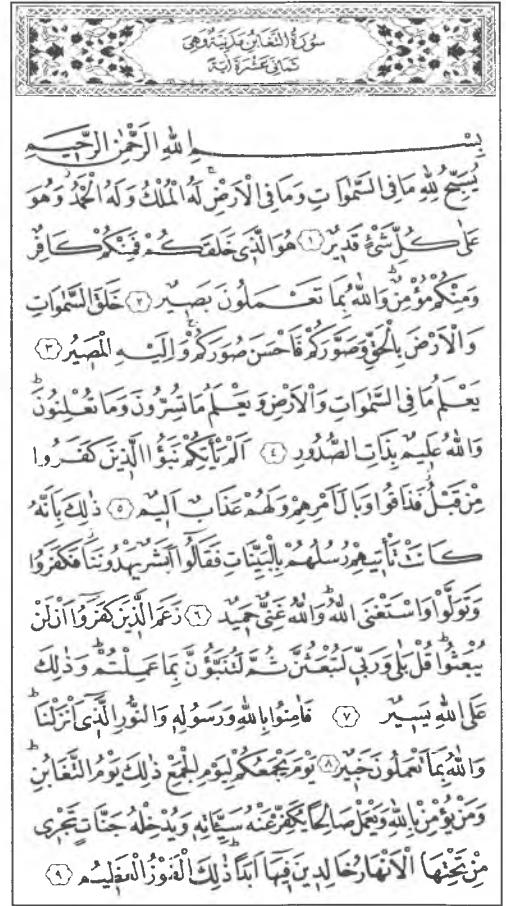 سُورَةُ التَّغَابُنِ مَدَنِيَّةٌ وَهِيَ
ثَمَانِيَ عَشْرَةَ اٰيَةً
بِسْمِ اللهِ الرَّحْمٰنِ الرَّحِيمِ
يُسَبِّحُ لِلّٰهِ مَا فِي السَّمٰوَاتِ وَمَا فِي الْاَرْضِۚ لَهُ الْمُلْكُ وَلَهُ الْحَمْدُۘ وَهُوَ
عَلٰى كُلِّ شَيْءٍ قَدِيرٌ ﴿١﴾ هُوَ الَّذِي خَلَقَكُمْ فَمِنْكُمْ كَافِرٌ
وَمِنْكُمْ مُؤْمِنٌۜ وَاللّٰهُ بِمَا تَعْمَلُونَ بَصِيرٌ ﴿٢﴾ خَلَقَ السَّمٰوَاتِ
وَالْاَرْضَ بِالْحَقِّ وَصَوَّرَكُمْ فَاَحْسَنَ صُوَرَكُمْۚ وَاِلَيْهِ الْمَصِيرُ ﴿٣﴾
يَعْلَمُ مَا فِي السَّمٰوَاتِ وَالْاَرْضِ وَيَعْلَمُ مَا تُسِرُّونَ وَمَا تُعْلِنُونَۜ
وَاللّٰهُ عَلِيمٌ بِذَاتِ الصُّدُورِ ﴿٤﴾ اَلَمْ يَأْتِكُمْ نَبَؤُا الَّذِينَ كَفَرُوا
مِنْ قَبْلُۘ فَذَاقُوا وَبَالَ اَمْرِهِمْ وَلَهُمْ عَذَابٌ اَلِيمٌ ﴿٥﴾ ذٰلِكَ بِاَنَّهُ
كَانَتْ تَأْتِيهِمْ رُسُلُهُمْ بِالْبَيِّنَاتِ فَقَالُٓوا اَبَشَرٌ يَهْدُونَنَاۘ فَكَفَرُوا
وَتَوَلَّوْا وَاسْتَغْنَى اللّٰهُۜ وَاللّٰهُ غَنِيٌّ حَمِيدٌ ﴿٦﴾ زَعَمَ الَّذِينَ كَفَرُٓوا اَنْ لَنْ
يُبْعَثُواۜ قُلْ بَلٰى وَرَبِّي لَتُبْعَثُنَّ ثُمَّ لَتُنَبَّؤُنَّ بِمَا عَمِلْتُمْۜ وَذٰلِكَ
عَلَى اللّٰهِ يَسِيرٌ ﴿٧﴾ فَاٰمِنُوا بِاللّٰهِ وَرَسُولِهِ وَالنُّورِ الَّذِٓي اَنْزَلْنَاۜ
وَاللّٰهُ بِمَا تَعْمَلُونَ خَبِيرٌ ﴿٨﴾ يَوْمَ يَجْمَعُكُمْ لِيَوْمِ الْجَمْعِ ذٰلِكَ يَوْمُ التَّغَابُنِۜ
وَمَنْ يُؤْمِنْ بِاللّٰهِ وَيَعْمَلْ صَالِحًا يُكَفِّرْ عَنْهُ سَيِّـَٔاتِهِ وَيُدْخِلْهُ جَنَّاتٍ تَجْرِي
مِنْ تَحْتِهَا الْاَنْهَارُ خَالِدِينَ فِيهَٓا اَبَدًاۜ ذٰلِكَ الْفَوْزُ الْعَظِيمُ ﴿٩﴾